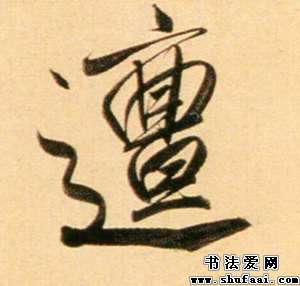 邅
书法爱网
www.shufaai.com